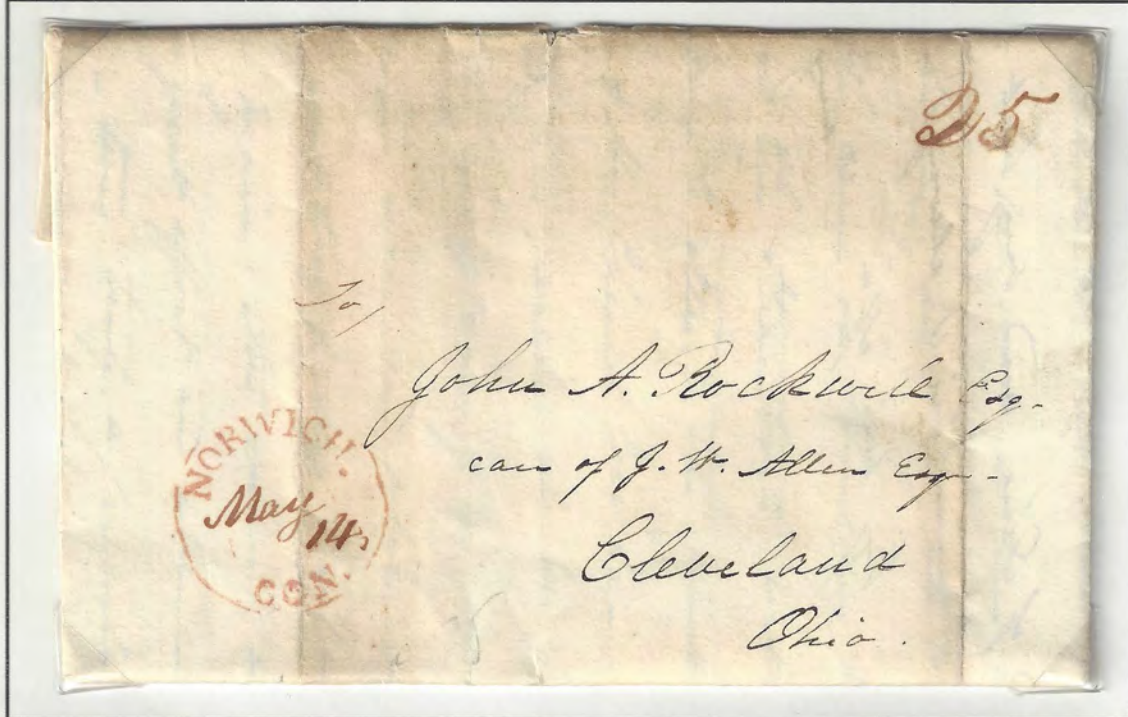 25
To/
John A. Rockwell Esq.
care of J. W. Allen Esq.
Cleveland
Ohio.
NORWICH.
May
14
CON.